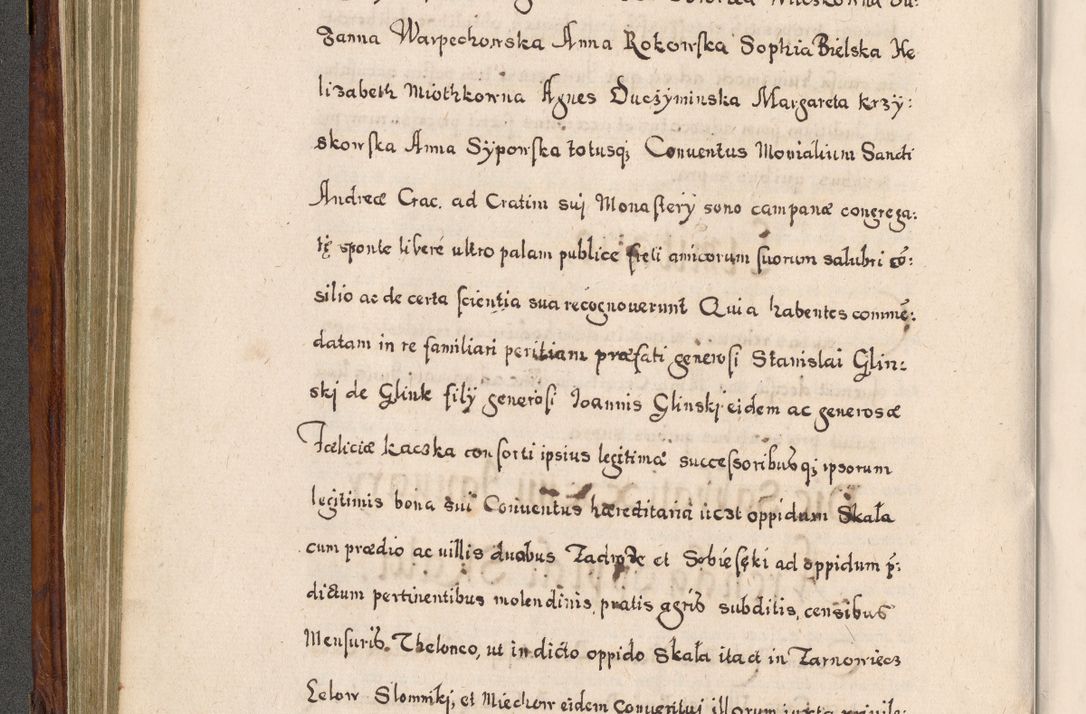 zanna Warpechowska Anna Rokowska Sophia Bielska He
lizabeth Miothkowna Agnes Duczyminska Margareta krzy:
skowska Anna Sypowska totusq; Conuentus Monialium Sancti
Andreæ Crac. ad Cratim suj Monastery sono campanæ congrega:
tę sponte liberé ultro palam publice freti amicorum suorum salubri cō:
silio ac de certa scientia sua recognouerunt Quia habentes commē:
datam in re familiari peritiam præfati generosi Stanislai Glin:
skj de Glink filÿ generosi Joannis Glinskj eidem ac generosæ
Fæliciæ kaczka consorti ipsius legitimæ successoribusq; ipsorum
legitimis bona sui Conuentus hæreditaria ucst oppidum Skała
cum prædio ac uillis duobus Zadroze et Sobiesękj ad oppidum p̄:
dictum pertinentibus molendinis, pratis agris subditis, censibus
Mensuris. Theloneo, ut in dicto oppido Skała ita et in Tarnowiecz
Lelow Slomnikj, et Miechow eidem Conuentuj illorum iuxta priuile: